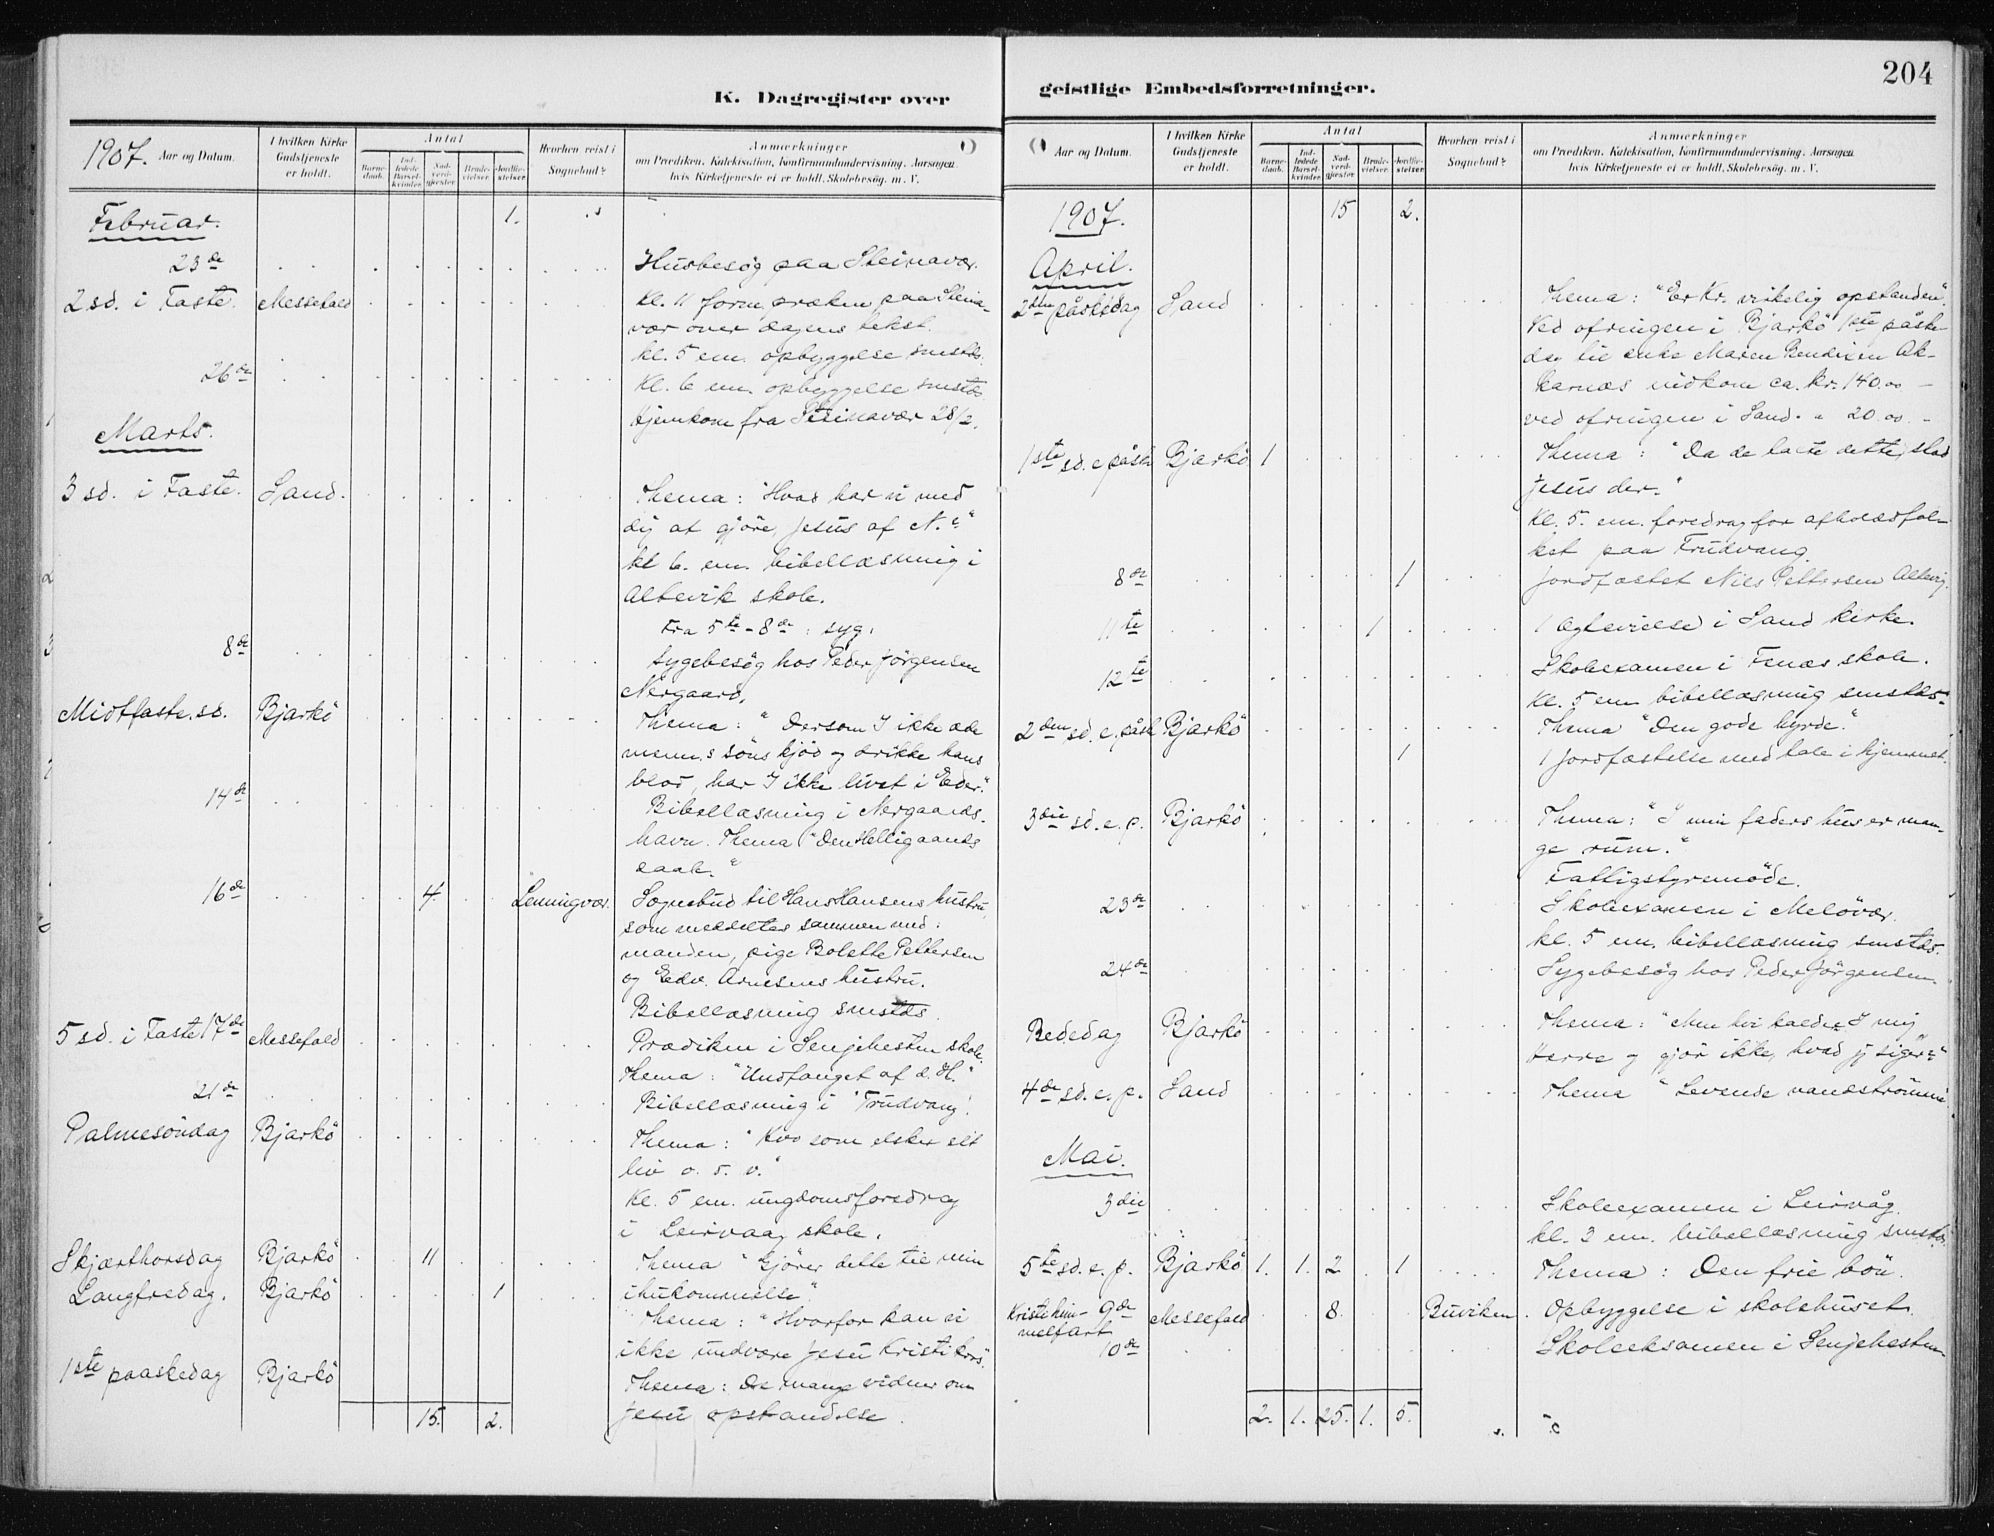 K. Dagregister over
1907. Aar og Datum.
I hvilken Kirke Gudstjeneste er holdt.
Antal
Barnedaab.
Indledede Barselkvinder.
Nadverdgjæster
Brudevielser.
Jordfæstelser
Hvorhen reist i Sognebud?
Anmærkninger
om Prædiken, Katekisation, Konfirmandundervisning, Aarsagen
hvis Kirketjeneste ei er holdt, Skolebesøg, m. V.
Februar. 1.
23de Husbesög paa Steinavær.
2 sd. i Faste. Messefald Kl. 11 form. præken paa Steina-
vær over dagens tekst.
kl. 5 em. opbyggelse smstds.
26de Kl. 6 em. opbyggelse smstds
Hjemkom fra Steinavær 28/2.
Marts.
3 sd. i Faste. Sand. Thema: "Hvad har vi med
dig at gjöre, Jesus af N.?"
kl 6. em. bibellæsning i
Altevik skole.
Fra 5te-8de: syg.
8de Sygebesög hos Peder Jörgensen
Nergaard.
Midtfaste sd. Bjarkö Thema: "Dersom I ikke æde
menn.s söns kjöd og drikke hans
blod, har I ikke livet i Eder."
14de Bibellæsning i Nergaards-
havn. Thema "Den Helligaands
daab."
16de 4. Lemingvær. Sognebud til Hans Hansens hustru,
som meddeltes sammen med:
manden, pige Bolette Pettersen
og Edv. Arnesens hustru.
Bibellæsning smstds.
5 sd. i Faste 17de Messefald Prædiken i Senjehesten skole.
Thema: "Undfanget af d. H."
21de Bibellæsning i "Trudvang".
Palmesöndag Bjarkö Thema: "Hvo som elsker sit
liv o. s. v."
Kl. 5 em. ungdomsforedrag
i Leirvaag skole.
Skjærthorsdag Bjarkö 11 Thema "Gjörer dette til min
ihukommelse".
Langfredag. Bjarkö 1 Thema: "Hvorfor kan vi
ikke undvære Jesu Kristi kors".
1ste paaskedag Bjarkö Thema: De mange vidner om
Jesu opstandelse.
15. 2.
geistlige Embedsforretninger.
204
Aar og Datum.
I hvilken Kirke Gudstjeneste er holdt.
Antal
Barnedaab.
Indledede Barselkvinder.
Nadverdgjæster
Brudevielser.
Jordfæstelser
Hvorhen reist i Sognebud?
Anmærkninger
om Prædiken, Katekisation, Konfirmandundervisning, Aarsagen
hvis Kirketjeneste ei er holdt, Skolebesøg, m. V.
1907. 15 2.
April.
2den påskedag Sand Thema: "Er Kr. virkelig opstanden".
Ved ofringen i Bjarkö 1ste påske-
dag til enke Maren Bendixen Ak-
karnæs indkom ca. kr. 140.00 –
ved ofringen i Sand. " 20.00. –
1ste sd. e påske Bjarkö 1 Thema: "Da de talte dette, stod
Jesus der."
Kl. 5. em. foredrag for afholdsfol-
ket paa Trudvang.
8de 1 Jordfæstet Nils Pettersen Altevig.
11te 1 1 Ægtevielse i Sand kirke.
12te Skoleexamen i Fenæs skole.
Kl. 5 em bibellæsning smstds.
2den sd. e. påsk Bjarkö Thema "Den gode hyrde".
1 1 Jordfæstelse med tale i hjemmet.
3die sd. e. p. Bjarkö Thema: "I min faders hus er man-
ge rum."
Fattigstyremöde.
23de Skoleexamen i Melövær.
kl. 5 em. bibellæsning smstds.
24de Sygebesög hos Peder Jörgensen.
Bededag Bjarkö Thema: "Men hvi kalder I mig
Herre og gjör ikke, hvad jg siger?"
4de sd. e. p. Sand Thema "Levende vandströmme
Mai.
3die Skoleexamen i Leirvåg.
kl. 3 em. bibellæsning smstds.
5te sd. e. p. Bjarkö 1. 1. 2 1 Thema: Den frie bön.
Kristi him-melfart 9de Messefald 8. Buviken. Opbyggelse i skolehuset.
10de Skoleeksamen i Senjehesten.
2. 1. 25. 1. 5.